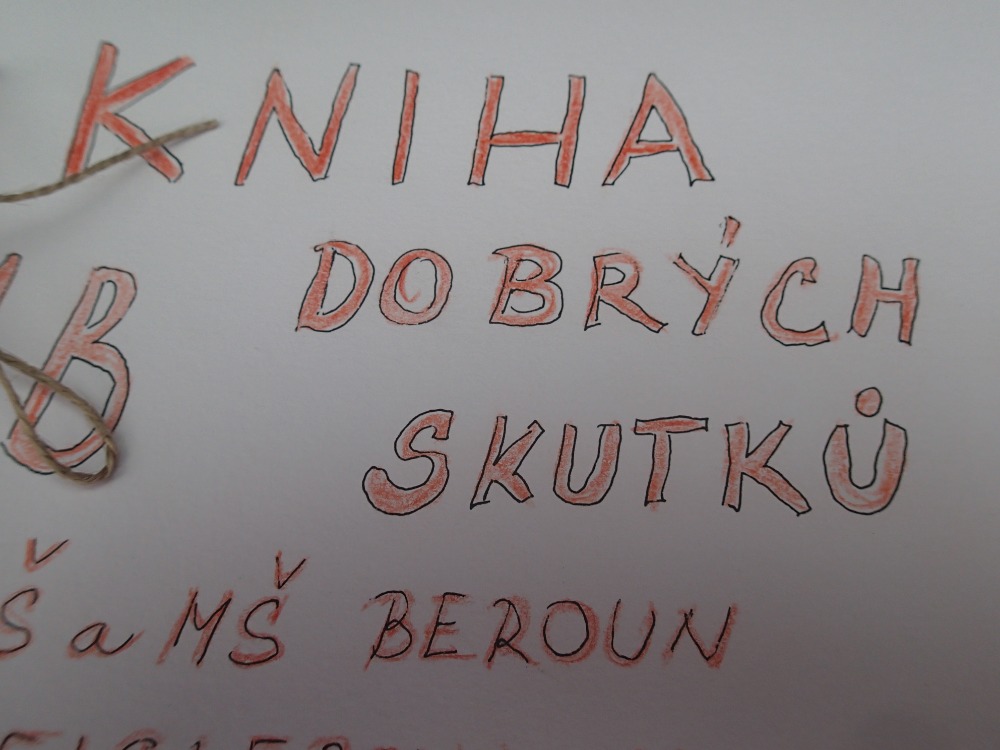 KNIHA
DOBRÝCH
B
SKUTKŮ
Š a MŠ BEROUN